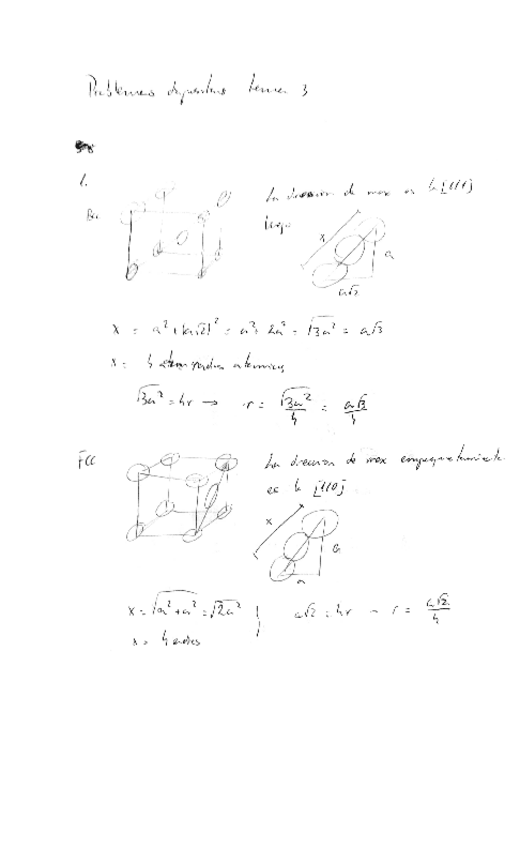 Problemas propuestos tema 3
1.
Bcc
La dirección de max es la [111]
luego
x
a
a√2
x = a² + (a√2)² = a² + 2a² = √3a² = a√3
x = 4 radios atomicos
√3a² = 4r → r = √3a²/4 = a√3/4
FCC
La direccion de max empaquetamiento
es la [110]
x
a
a
x = √a² + a² = √2a²
a√2 = 4r → r = a√2/4
x = 4 radios